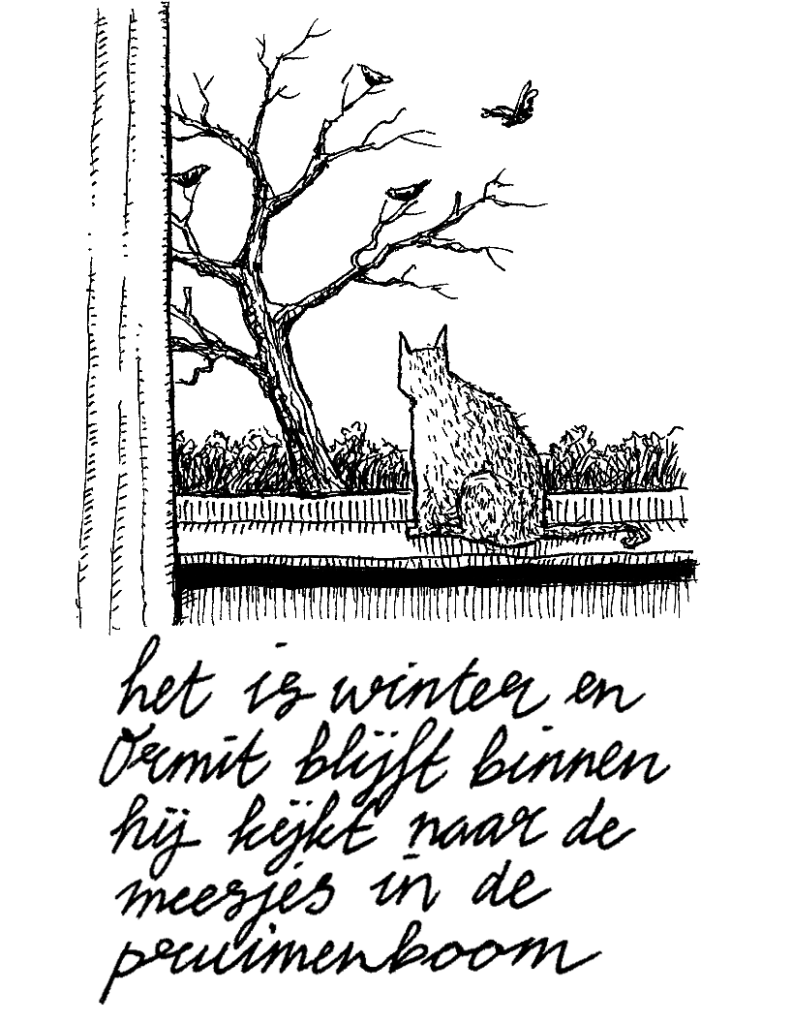 het is winter en
Ormit blijft binnen
hij kijkt naar de
meesjes in de
pruimenboom